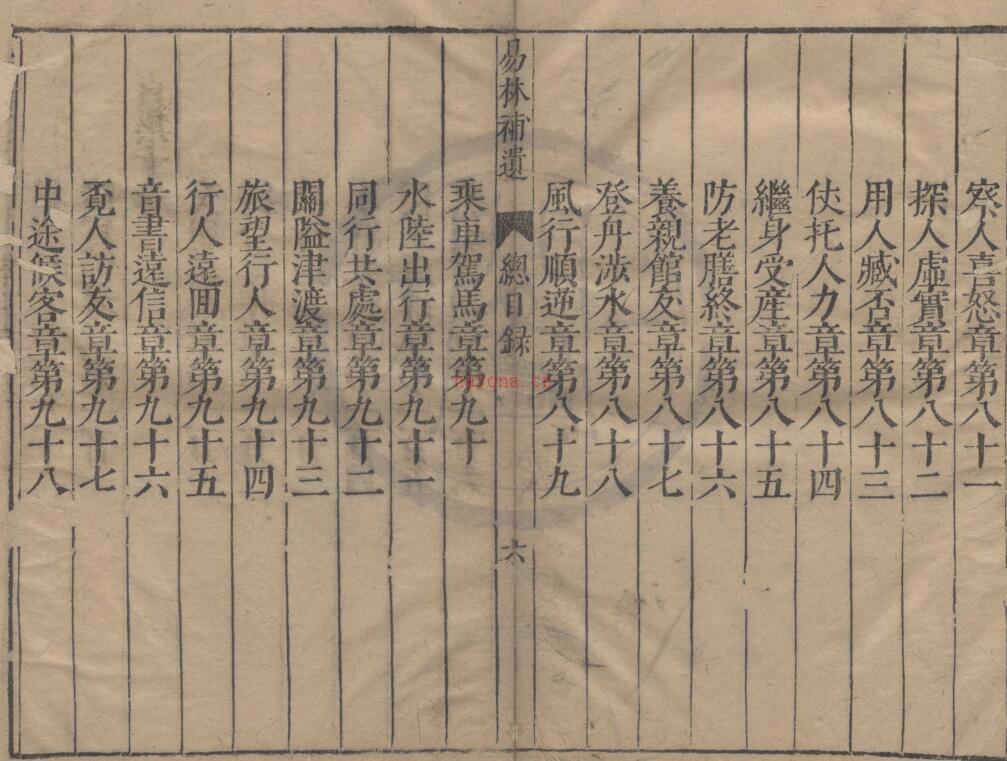 察人喜怒章第八十一
探人虛實章第八十二
用人臧否章第八十三
仗托人力章第八十四
繼身受産章第八十五
防老膳終章第八十六
養親館友章第八十七
登丹涉水章第八十八
風行順逆章第八十九
易林補遺 總目録 六
乘車駕馬章第九十
水陸出行章第九十一
同行共處章第九十二
關隘津渡章第九十三
旅望行人章第九十四
行人遠囬章第九十五
音書遠信章第九十六
覓人訪友章第九十七
中途候客章第九十八